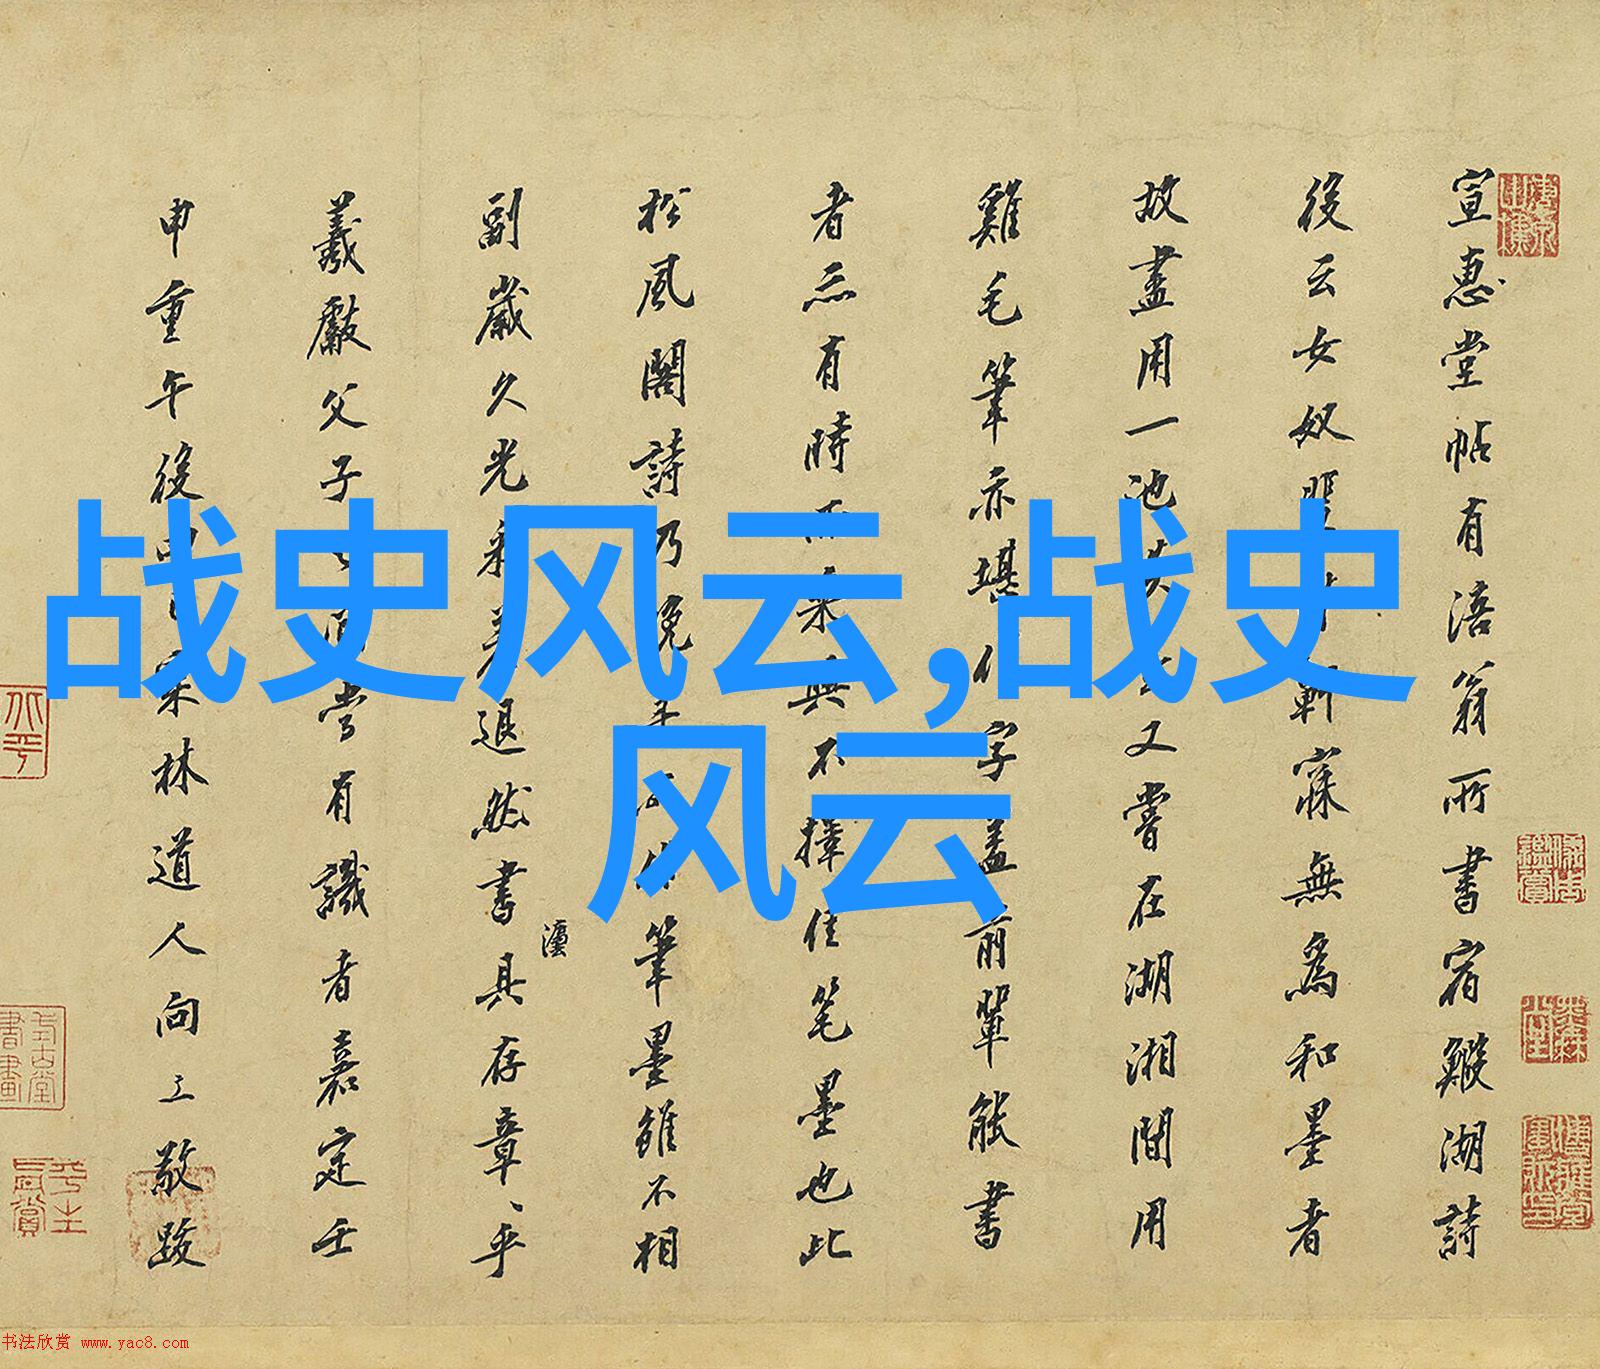 战史风云,战史
风云
宣惠堂帖有涪翁所書宿鰕湖詩
後云女奴寐無為和墨者
故盡用一池又嘗在湖湘間用
雞毛筆亦堪作字蓋前輩能書
者亦有時不擇佳笔墨也此
松風閣詩乃晚筆墨雖不相
副歲久光退然書具存章、乎
瀍
羲獻父子嘗有識者嘉定壬
申重午後林道人向敬跋
书法欣赏 www.yac8.com